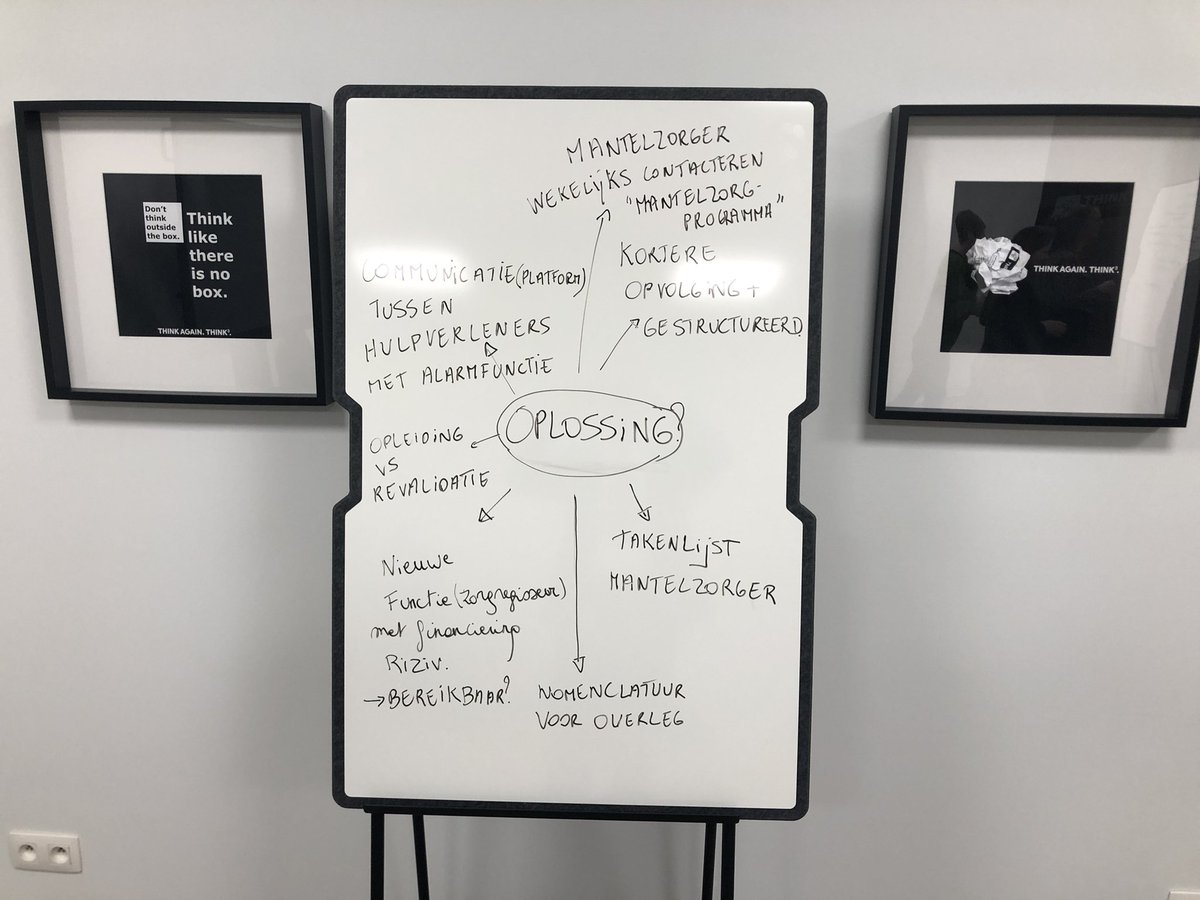 Don't
think
outside
the box.
Think
like
there
is no
box.
THINK AGAIN. THINK³.
MANTELZORGER
WEKELIJKS CONTACTEREN
"MANTELZORG-
PROGRAMMA"
KORTERE
OPVOLGING +
GESTRUCTUREERD
COMMUNICATIE (PLATFORM)
TUSSEN
HULPVERLENERS
MET ALARMFUNCTIE
OPLOSSING?
OPLEIDING
VS
REVALIDATIE
Nieuwe
Functie (zorgregisseur)
met financiering
RIZIV.
→ BEREIKBAAR?
NOMENCLATUUR
VOOR OVERLEG
TAKENLIJST
MANTELZORGER
THINK AGAIN. THINK³.